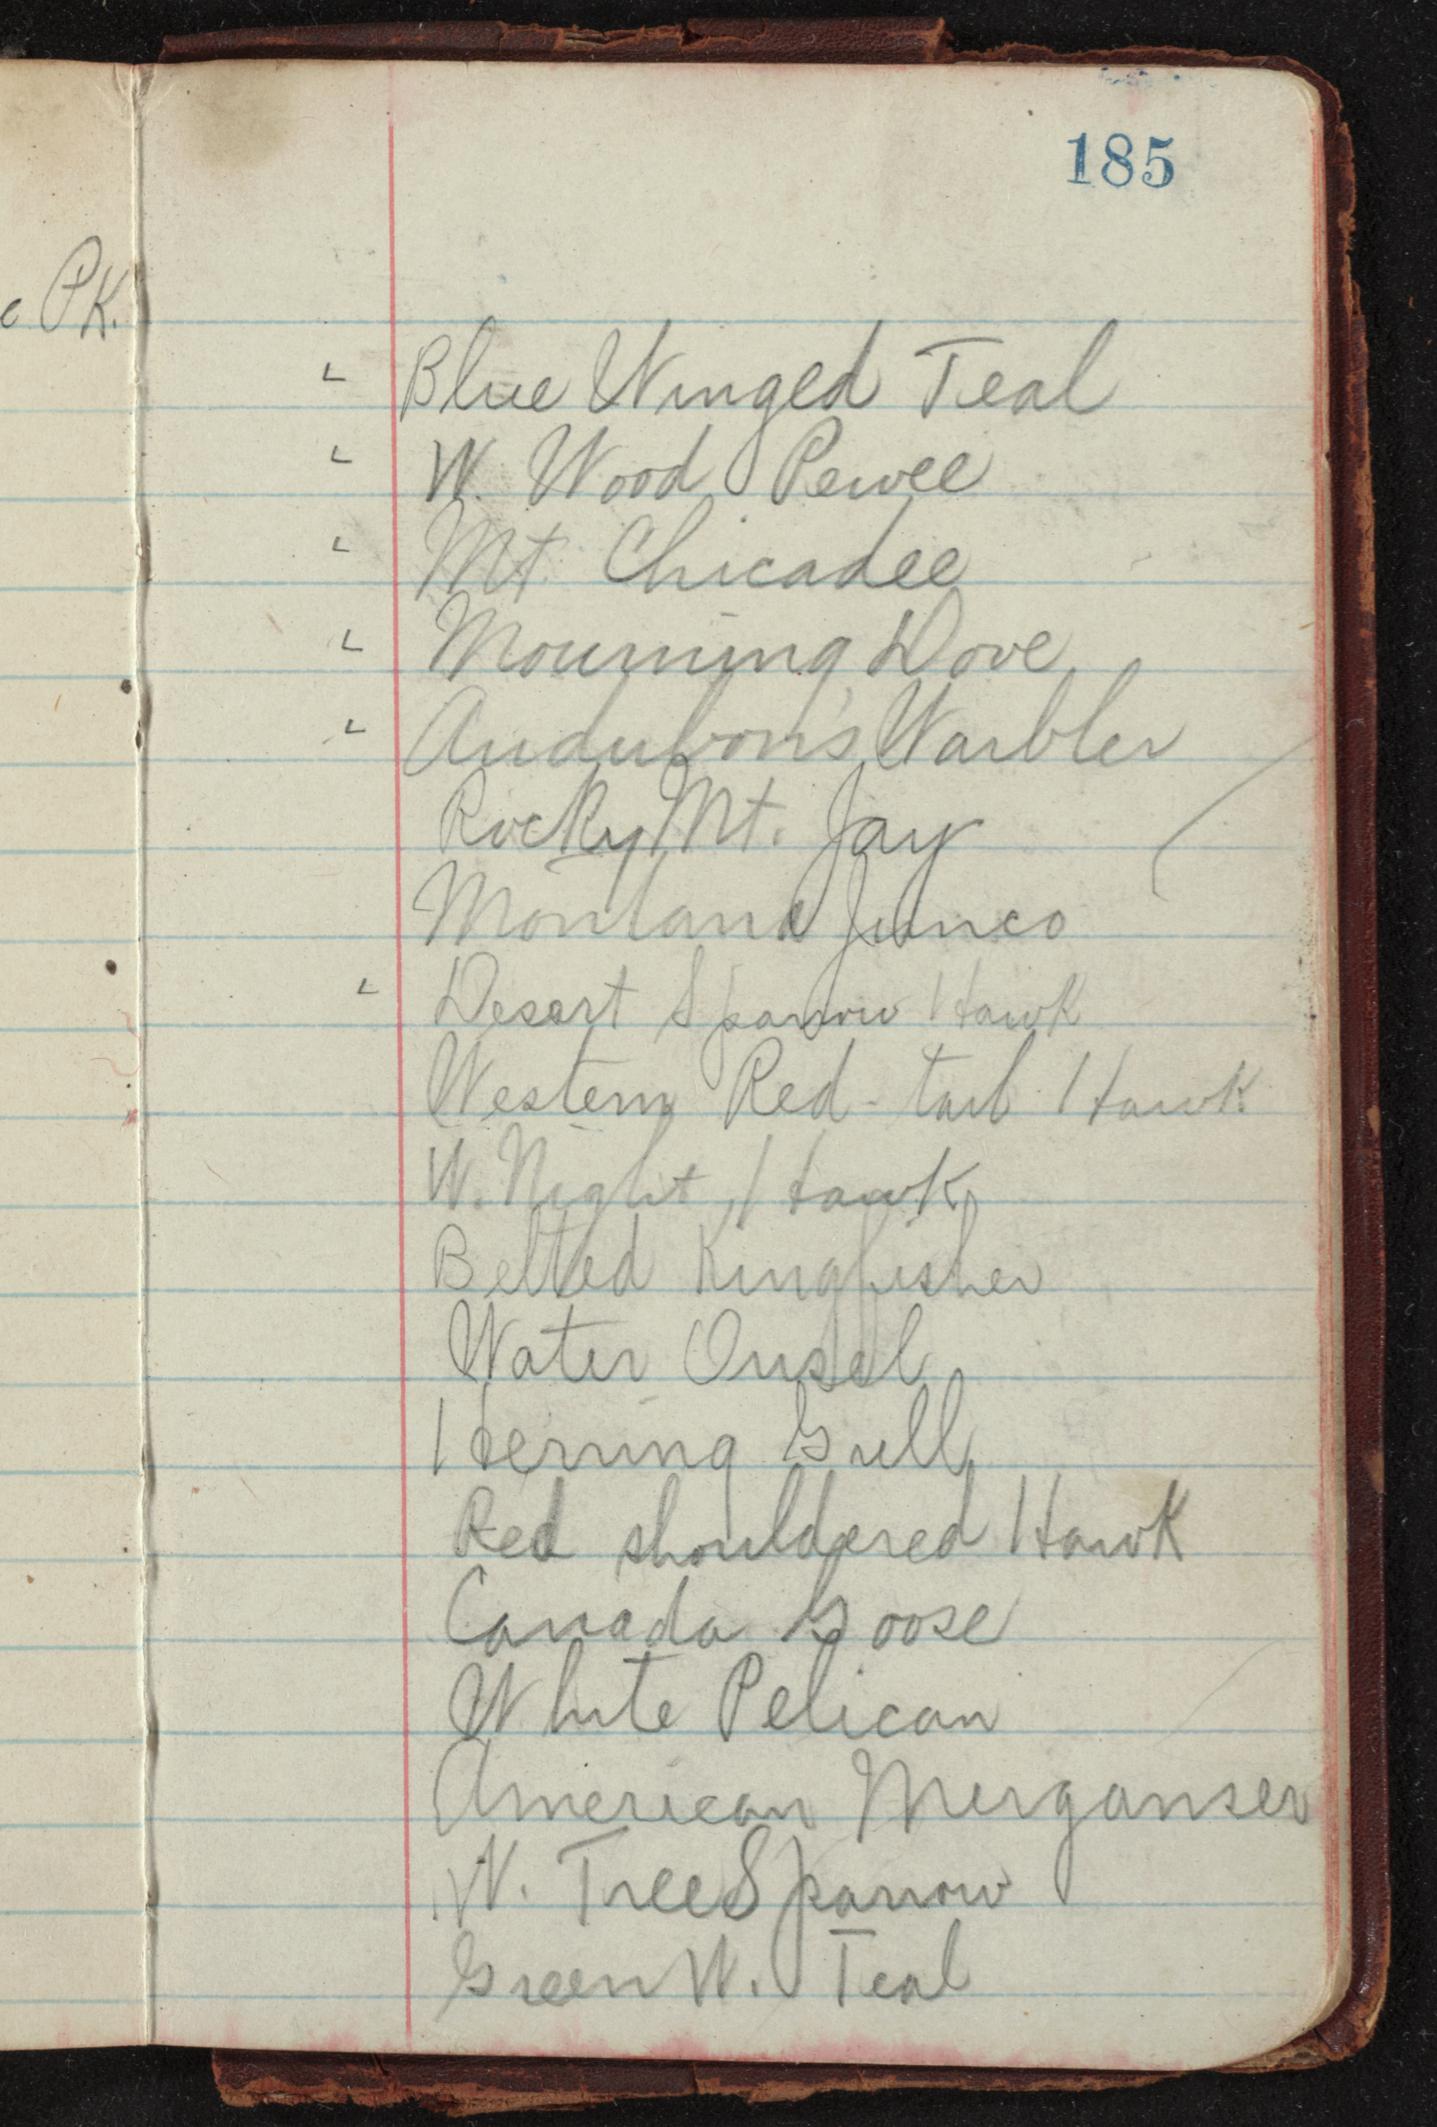 185
PK.
Blue Winged Teal
W. Wood Pewee
Mt. Chicadee
Mourning Dove
Audubon's Warbler
Rocky Mt. Jay
Montana Junco
Desert Sparrow Hawk
Western Red-tail Hawk
W. Night Hawk
Belted Kingfisher
Water Ousel
Herring Gull
Red shouldered Hawk
Canada Goose
White Pelican
American Merganser
W. Tree Sparrow
Green W. Teal